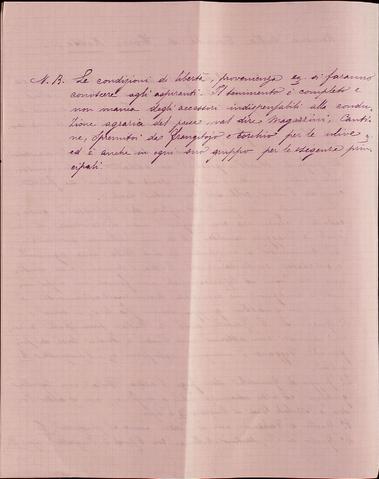 N. B. Le condizioni di libertà, provenienza eg. si faranno
conoscere agli aspiranti. Il tenimento è completo e
non manca degli accessori indispensabili alla condu-
zione agraria del paese val dire Magazzini, Canti-
ne, Spremitoi da frangeloio e torchio per le ulive,
ed è anche in ogni suo gruppo per le esigenze prin-
cipali.